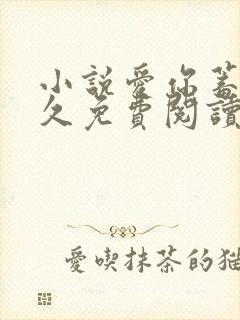 小說愛你蓄
久免費閱讀
愛喫抹茶的貓